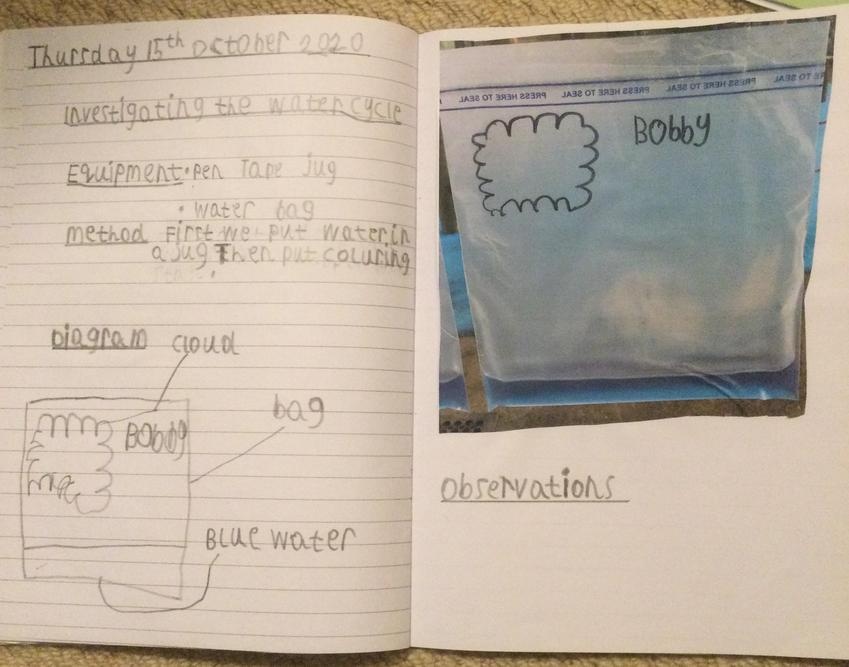 Thursday 15th October 2020
investigating the water cycle
Equipment • pen Tape jug
• water bag
method First we put water in
a jug Then put coluring
Diagram cloud
Bobby
bag
Blue water
PRESS HERE TO SEAL PRESS HERE TO SEAL PRESS HERE TO SEAL AL TO SEAL
Bobby
Observations